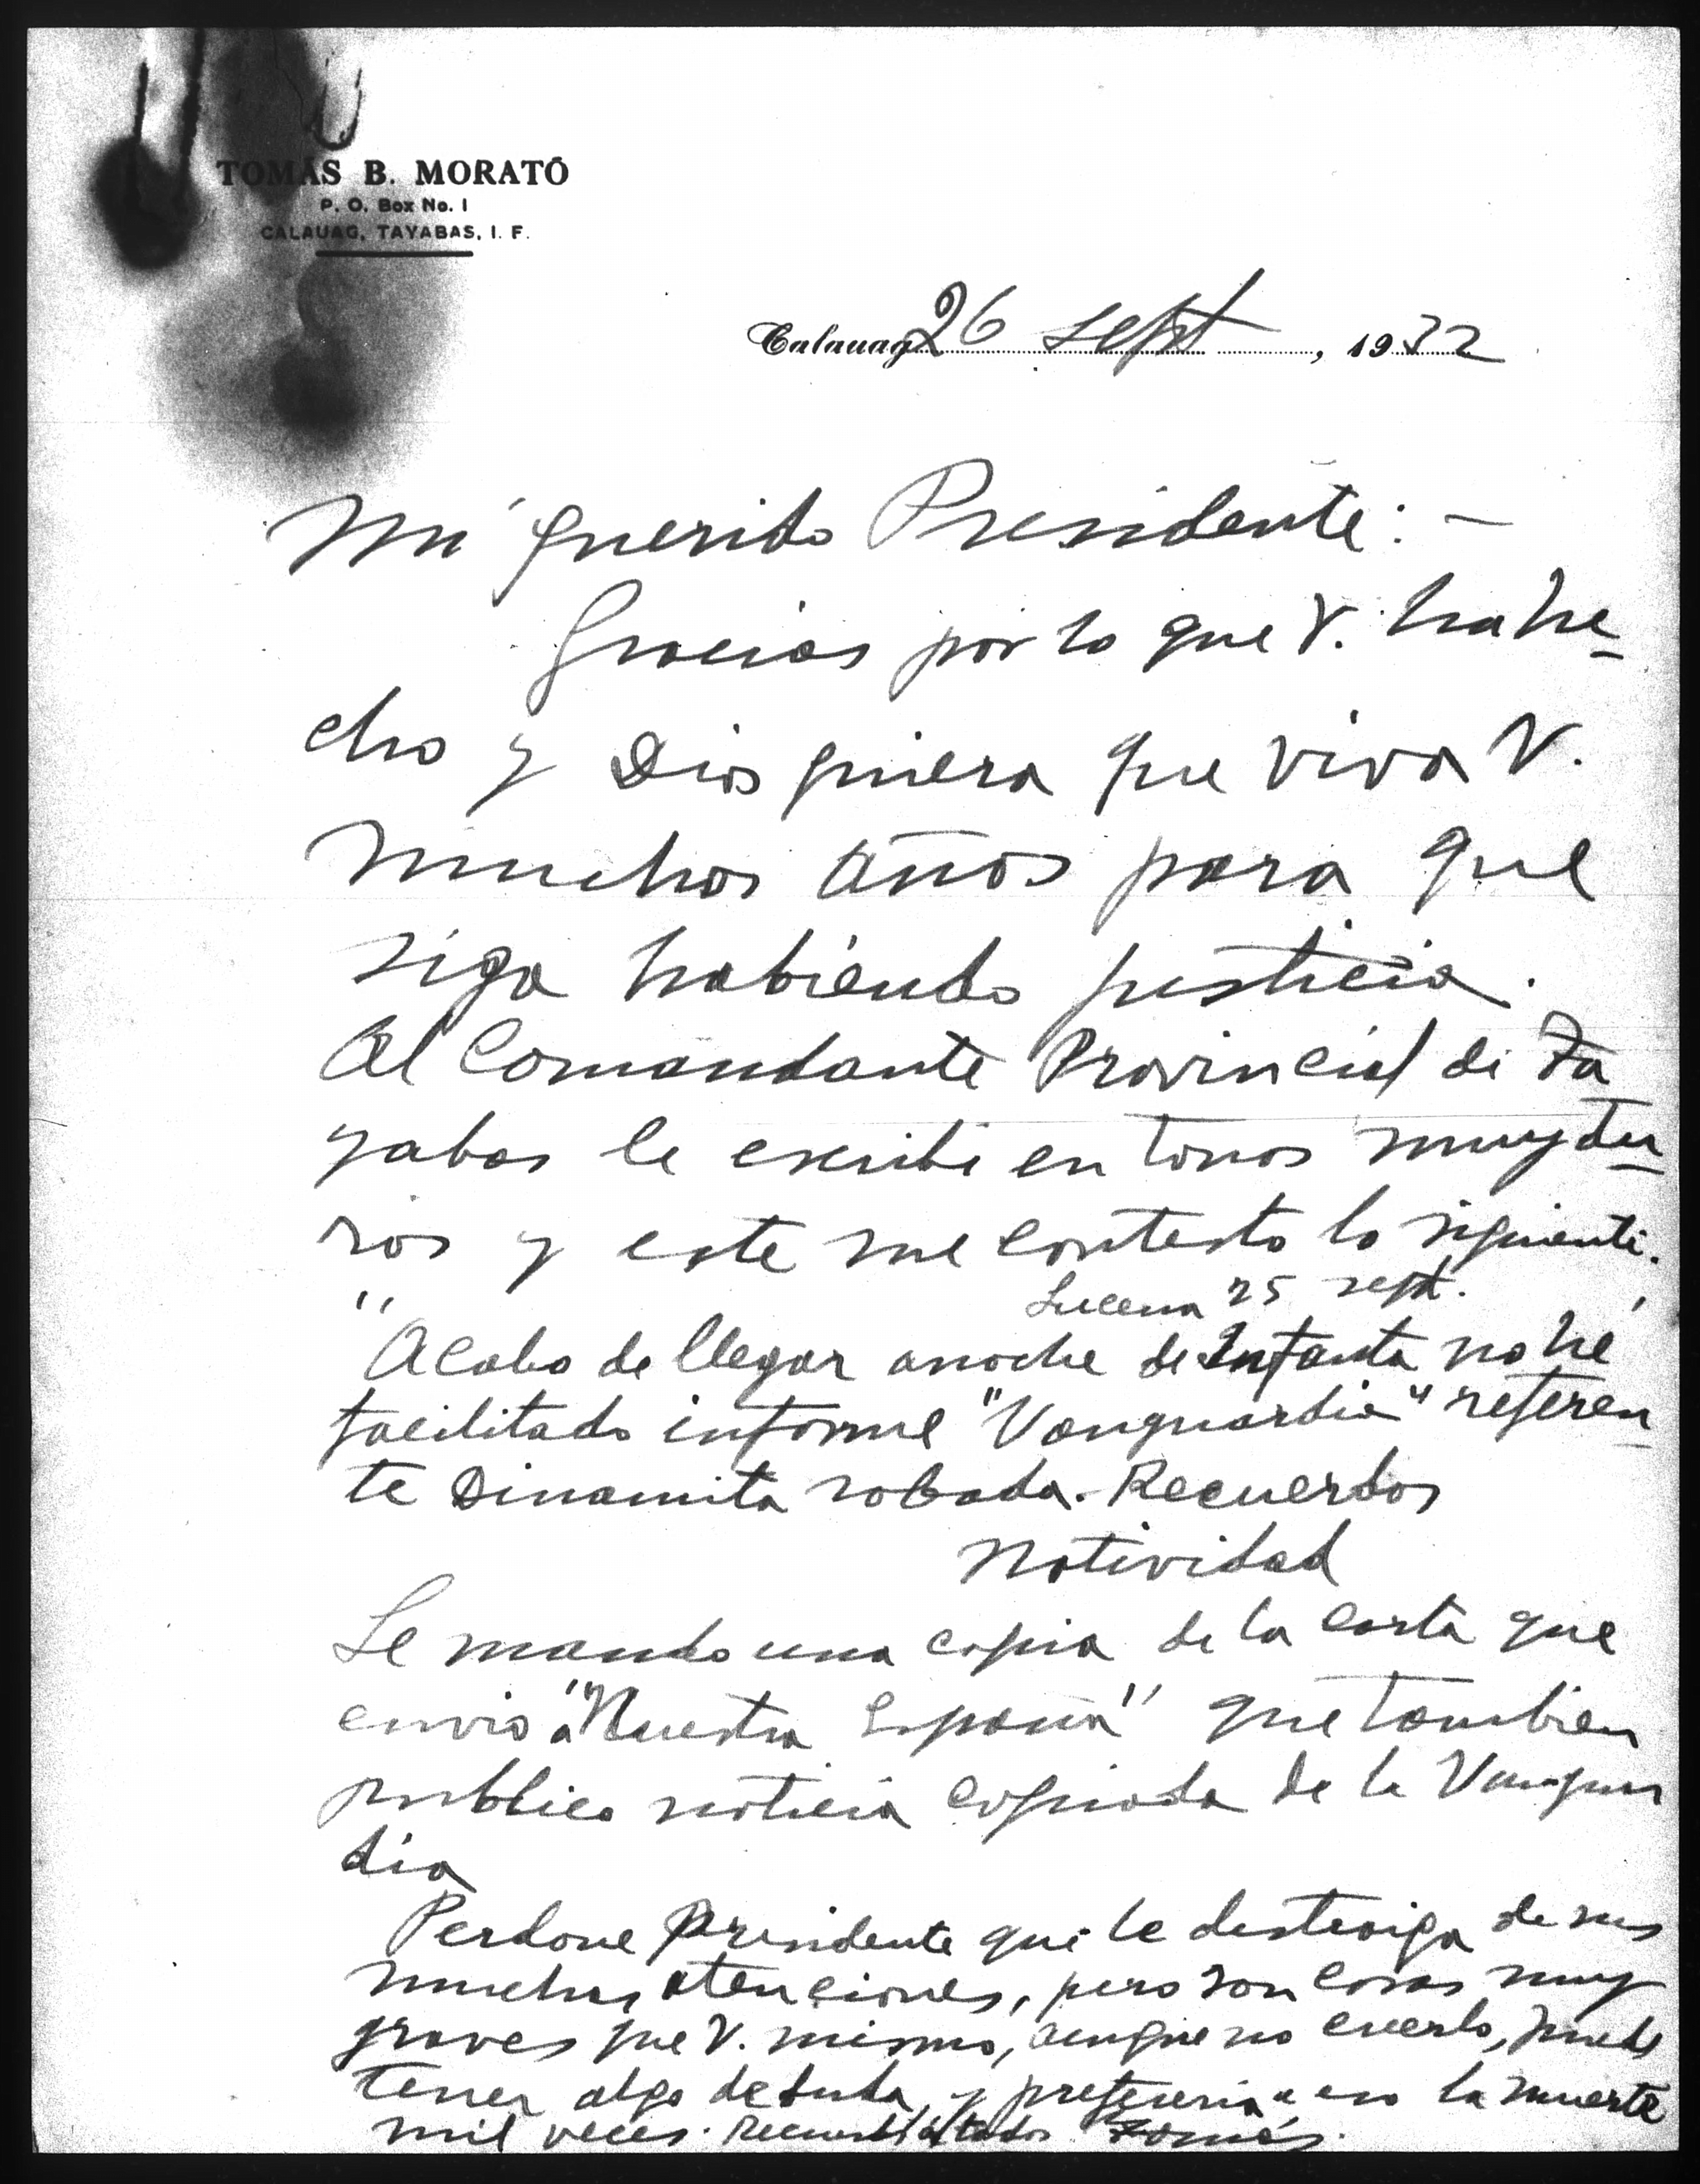 TOMÁS B. MORATÓ
P. O. Box No. 1
CALAUAG, TAYABAS, I. F.
Calauag 26 sept, 1932
Mi querido Presidente: —
Gracias por lo que V. ha he-
cho y Dios quiera que viva V.
muchos años para que
siga habiendo justicia.
Al Comandante Provincial de Ta
yabas le escribi en tonos muy du-
ros y este me contesto lo siguiente.
Lucena 25 sept.
"Acabo de llegar anoche de Infanta no he
facilitado informe "Vanguardia" referen-
te Dinamita robada. Recuerdos
Natividad
Le mando una copia de la carta que
envio á "Nuestra España" que tambien
publico noticia copiada de la Vanguar
dia
Perdone Presidente que le distraiga de sus
muchas atenciones, pero son cosas muy
graves que V. mismo, aunque no creerlo, puede
tener algo de duda, y preferiria a eso la muerte
mil veces. Recuerdos á todos Tomás.